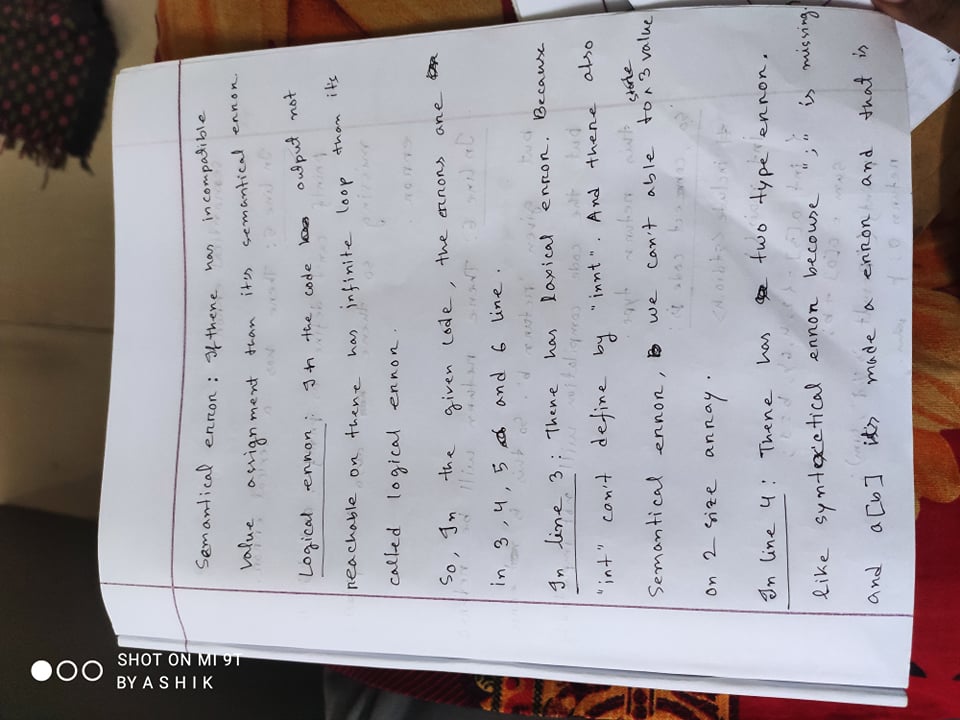 SHOT ON MI 9T
BY ASHIK
Semantical error : If there has incompatible
value assignment than it's semantical error.
Logical error : In the code output not
reachable or there has infinite loop than it's
called logical error.
So, In the given code, the errors are
in, 3, 4, 5 and 6 line.
In line 3 : There has laxical error. Because
"int" can't define by "innt". And there also
Semantical error, we can't able to store 3 value
on 2 size array.
In line 4 : There has two type error.
like syntactical error becouse ";" is missing.
and a[b] it's made a error and that is